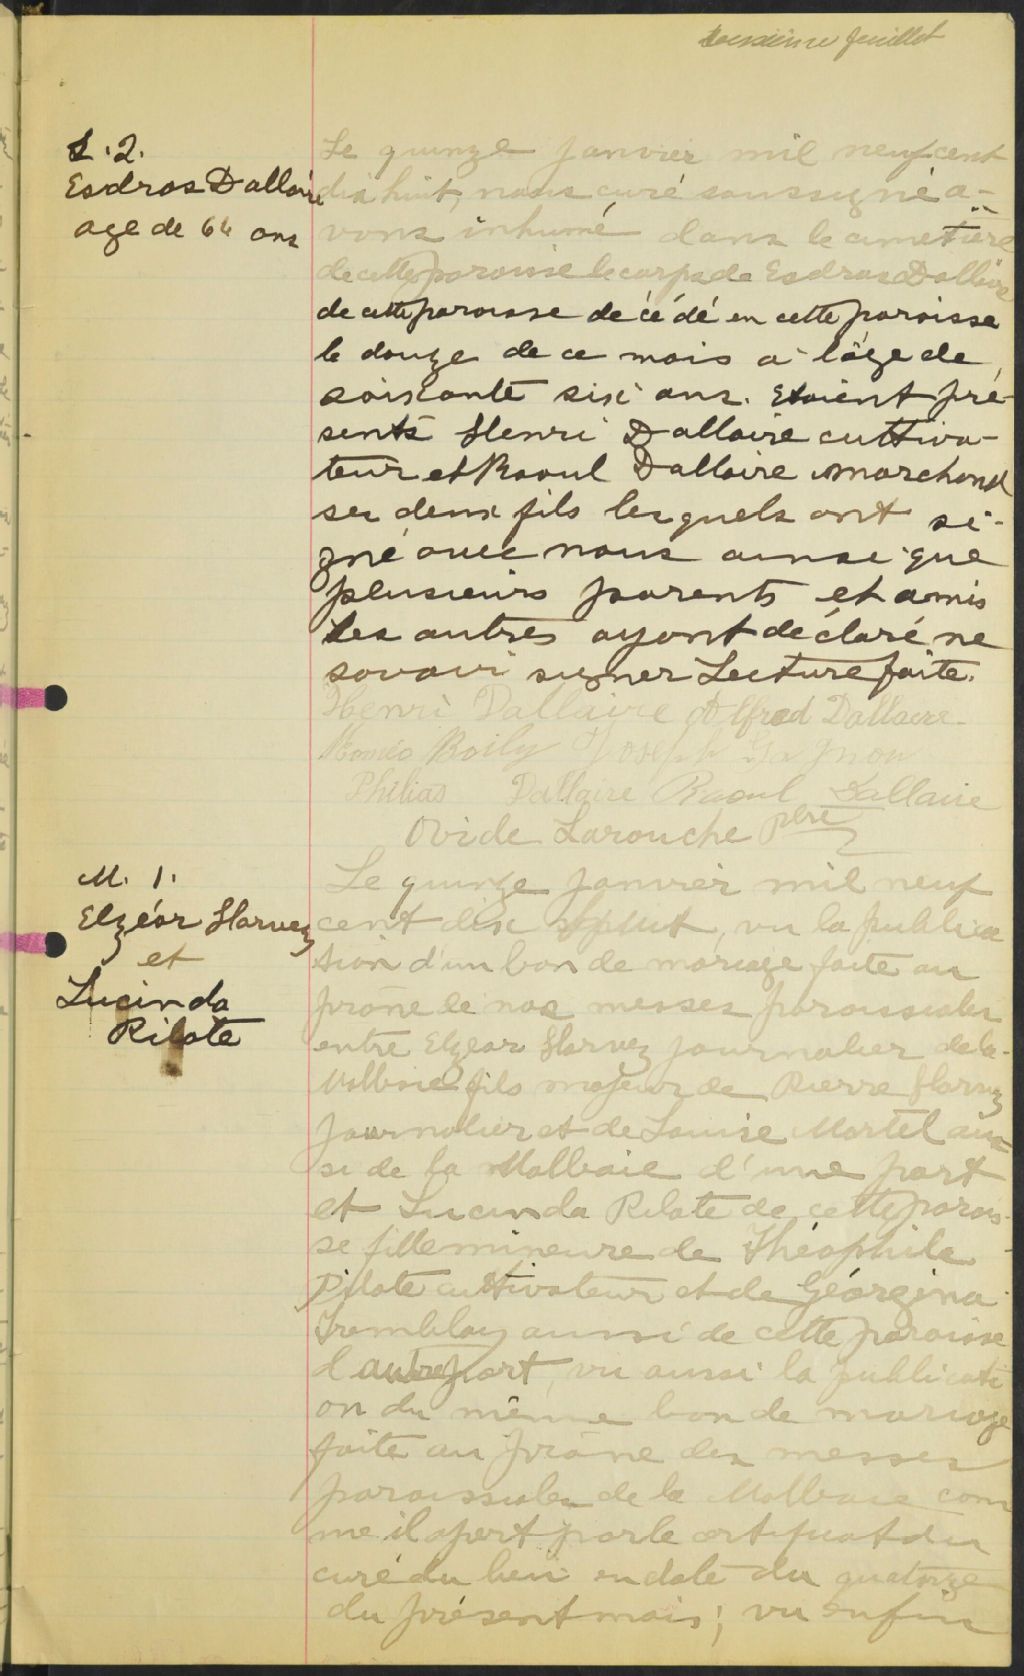 deuxième feuillet
S. 2.
Esdras Dallaire
age de 66 ans
Le quinze janvier mil neuf cent
dix huit, nous curé soussigné a-
vons inhumé dans le cimetière
de cette paroisse le corps de Esdras Dallaire
de cette paroisse décédé en cette paroisse
le douze de ce mois a l'âge de
soixante six ans. Etaient pré-
sents Henri Dallaire cultiva-
teur et Raoul Dallaire marchand
ses deux fils lesquels ont si-
gné avec nous ainsi que
plusieurs parents et amis
Les autres ayant déclaré ne
savoir signer Lecture faite.
Henri Dallaire Alfred Dallaire
Roméo Boily Joseph Gagnon
Philias Dallaire Raoul Dallaire
Ovide Larouche ptre
M. 1.
Elzéar Harvey
et
Lucinda
Pilote
Le quinze janvier mil neuf
cent dix huit, vu la publica
tion d'un ban de mariage faite au
prône de nos messes paroissiales
entre Elzear Harvey journalier de la
Malbaie fils majeur de Pierre Harvey
journalier et de Louise Martel aus-
si de la Malbaie d'une part
et Lucinda Pilote de cette parois-
se fille mineure de Théophile
Pilote cultivateur et de Géorgina
Tremblay aussi de cette paroisse
d'autre part, vu aussi la publicati
on du même ban de mariage
faite au prône des messes
paroissiales de la Malbaie com
me il apert par le certificat du
curé du lieu en date du quatorze
du présent mois; vu enfin